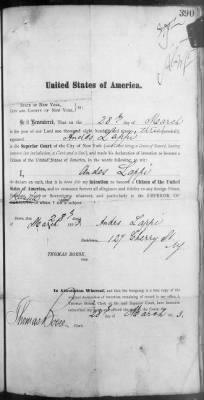 390
United States of America.
STATE OF NEW YORK,
CITY AND COUNTY OF NEW YORK, } ss:
Be it Remembered, That on the 28th day of March
in the year of our Lord one thousand eight hundred and seventy three
appeared Andes Lappi
in the Superior Court of the City of New York (said Court being a Court of Record, having
common law Jurisdiction, a Clerk and a Seal), and made his declaration of intention to become a
Citizen of the United States of America, in the words following, to wit:
I, Andes Lappi
do declare on oath, that it is bona fide my intention to become a Citizen of the United
States of America, and to renounce forever all allegiance and fidelity to any foreign Prince,
State or Sovereignty whatever, and particularly to the EMPEROR OF
of whom I am subject.
March 28th 1873 Andes Lappi
Residence, 127 Cherry St
NY
THOMAS BOESE,
Clerk.
In Attestation Whereof, and that the foregoing is a true copy of the
original declaration of intention remaining of record in my office, I,
Thomas Boese, Clerk of the said Superior Court, have hereunto
subscribed my name and affixed the seal of the Court this
28th day of March 3.
Thomas Boese
Clerk.